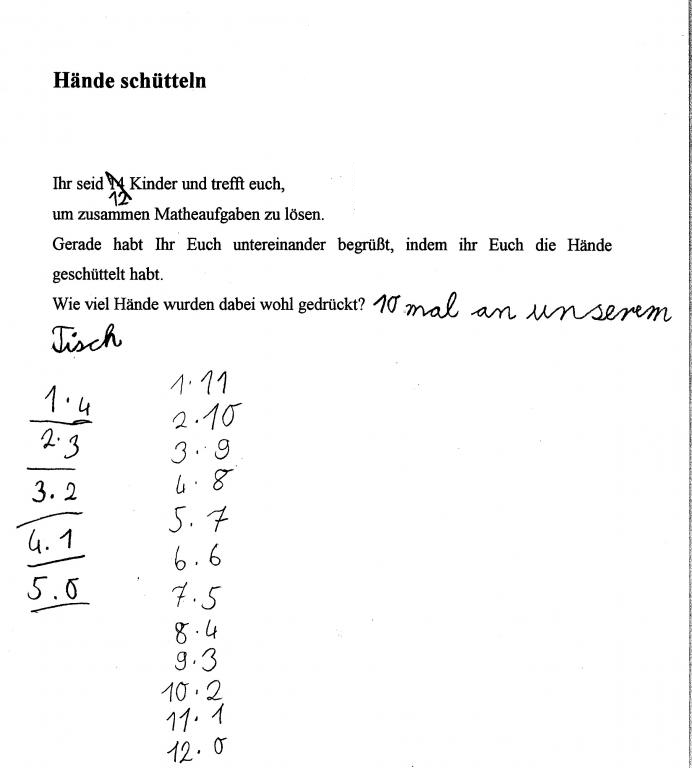 Hände schütteln
Ihr seid 14 Kinder und trefft euch,
12
um zusammen Matheaufgaben zu lösen.
Gerade habt Ihr Euch untereinander begrüßt, indem ihr Euch die Hände
geschüttelt habt.
Wie viel Hände wurden dabei wohl gedrückt? 10 mal an unserem
Tisch
1·4
2·3
3·2
4·1
5·0
1·11
2·10
3·9
4·8
5·7
6·6
7·5
8·4
9·3
10·2
11·1
12·0